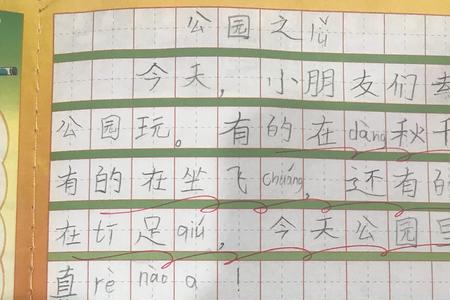 公园之lǚ
今天,小朋友们去
公园玩。有的在dàng秋千
有的在坐飞chuáng,还有的
在打足qiú,今天公园里
直rè nào a!